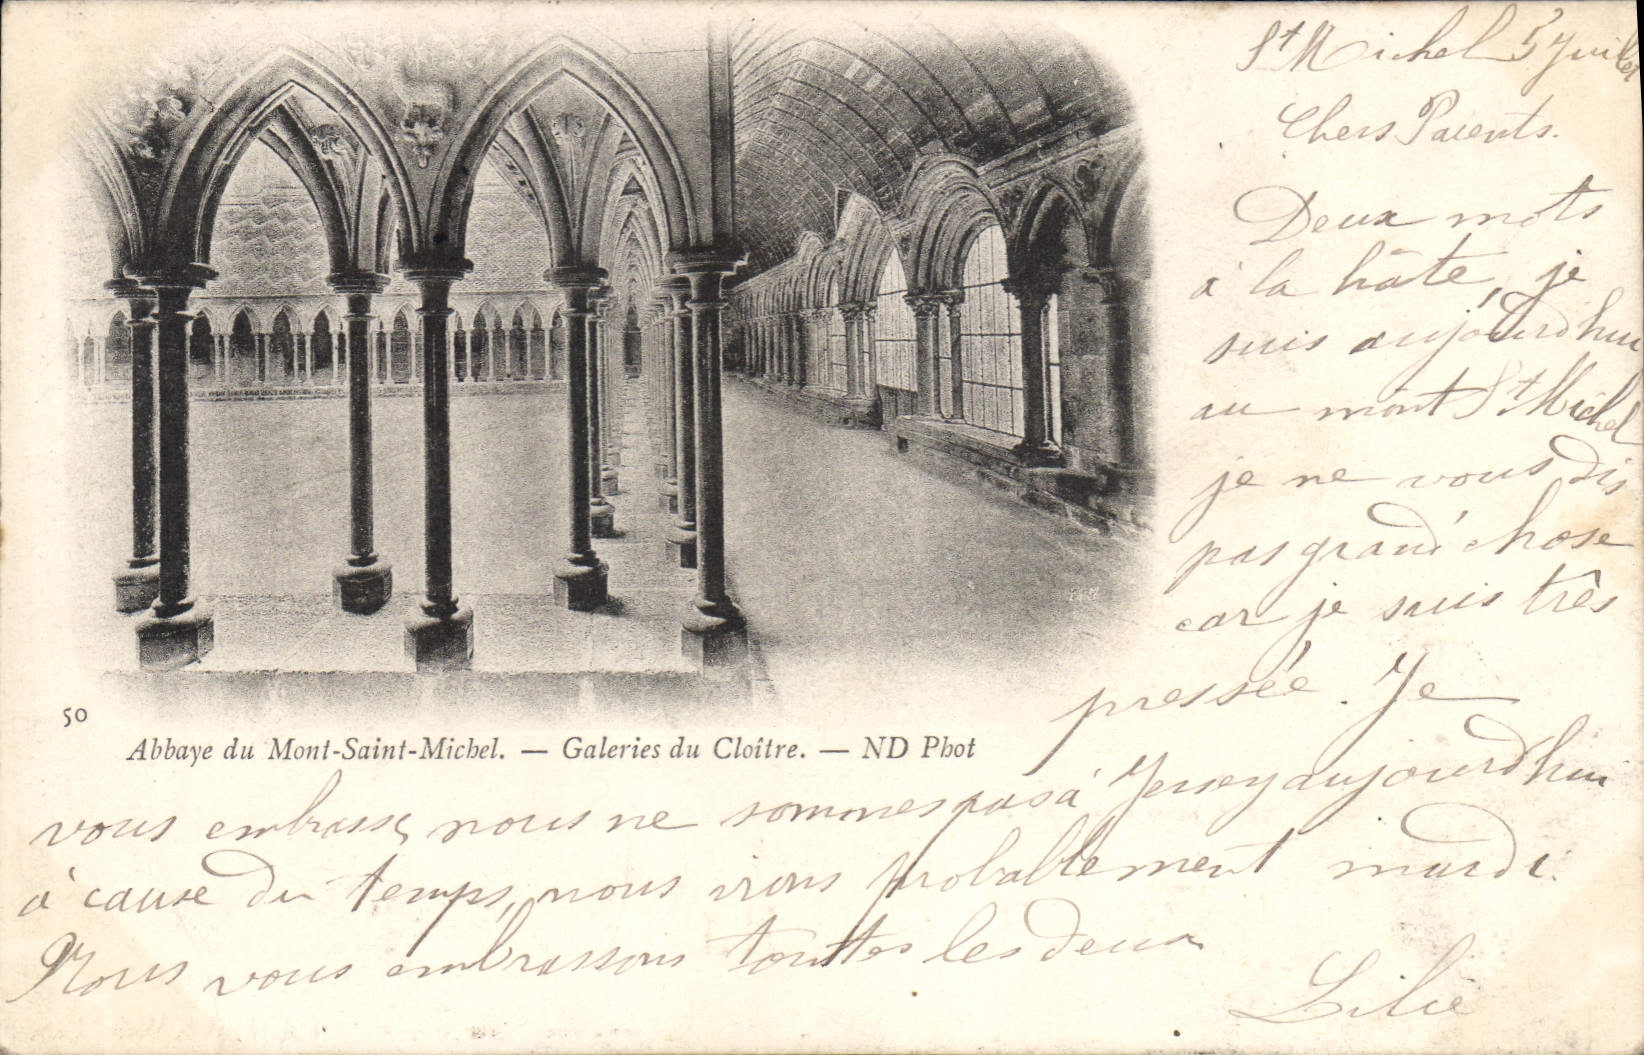 St Michel 5 Juillet
Chers Parents.
Deux mots
à la hâte, je
suis aujourd'hui
au mont St Michel
je ne vous dis
pas grand' chose
car je suis très
pressée. Je
50
Abbaye du Mont-Saint-Michel. — Galeries du Cloître. — ND Phot
vous embrasse, nous ne sommes pas à Jersey aujourd'hui
à cause du temps, nous irons probablement mardi.
Nous vous embrassons toutes les deux
Lilie